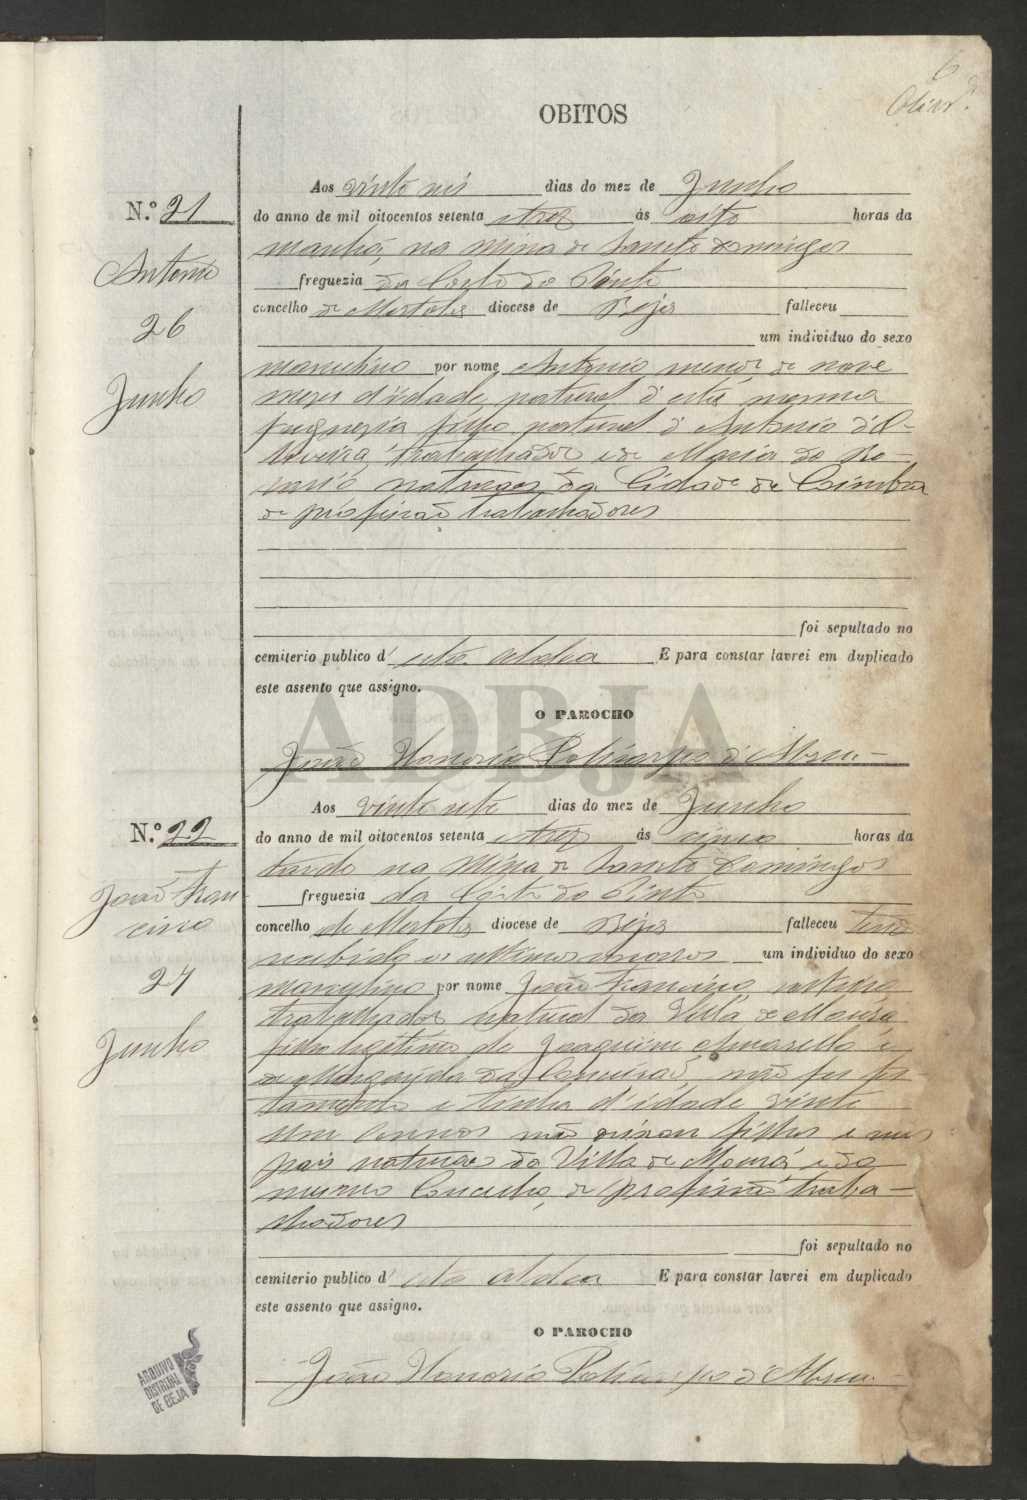 6
OBITOS
Aos vinte seis dias do mez de Junho
N.º 21
do anno de mil oitocentos setenta e trez ás oito horas da
manhã, na Mina de Sancto Domingos
Antonio
freguezia da Corte do Pinto
concelho de Mertola diocese de Beja falleceu
26
um individuo do sexo
masculino por nome Antonio, menor de nove
Junho
mezes d'idade, natural d'esta mesma
freguezia filho natural d'Antonio d'O-
liveira, trabalhador e de Maria do Ro-
sario naturaes da Cidade de Coimbra
de profissão trabalhadores
foi sepultado no
cemiterio publico d'esta aldea E para constar lavrei em duplicado
este assento que assigno.
O PAROCHO
João Honorio Policarpo d'Abreu
Aos vinte sete dias do mez de Junho
N.º 22
do anno de mil oitocentos setenta e trez ás cinco horas da
tarde na Mina de Sancto Domingos
João Fran
freguezia da Corte do Pinto
cisco
concelho de Mertola diocese de Beja falleceu tendo
recebido os ultimos um individuo do sexo
27
masculino por nome João Francisco, solteiro
trabalhador natural da Villa de Moura
Junho
filho legitimo de Joaquim Amarello e
de Margarida da Conceição, não fez tes-
tamento e tinha d'idade vinte
um annos não deixou filhos e seus
pais naturaes da Villa de Moura, e do
mesmo Concelho, de profissão traba-
lhadores
foi sepultado no
cemiterio publico d'esta aldea E para constar lavrei em duplicado
este assento que assigno.
O PAROCHO
João Honorio Policarpo d'Abreu
ADBJA
ARQUIVO
DISTRITAL
DE BEJA